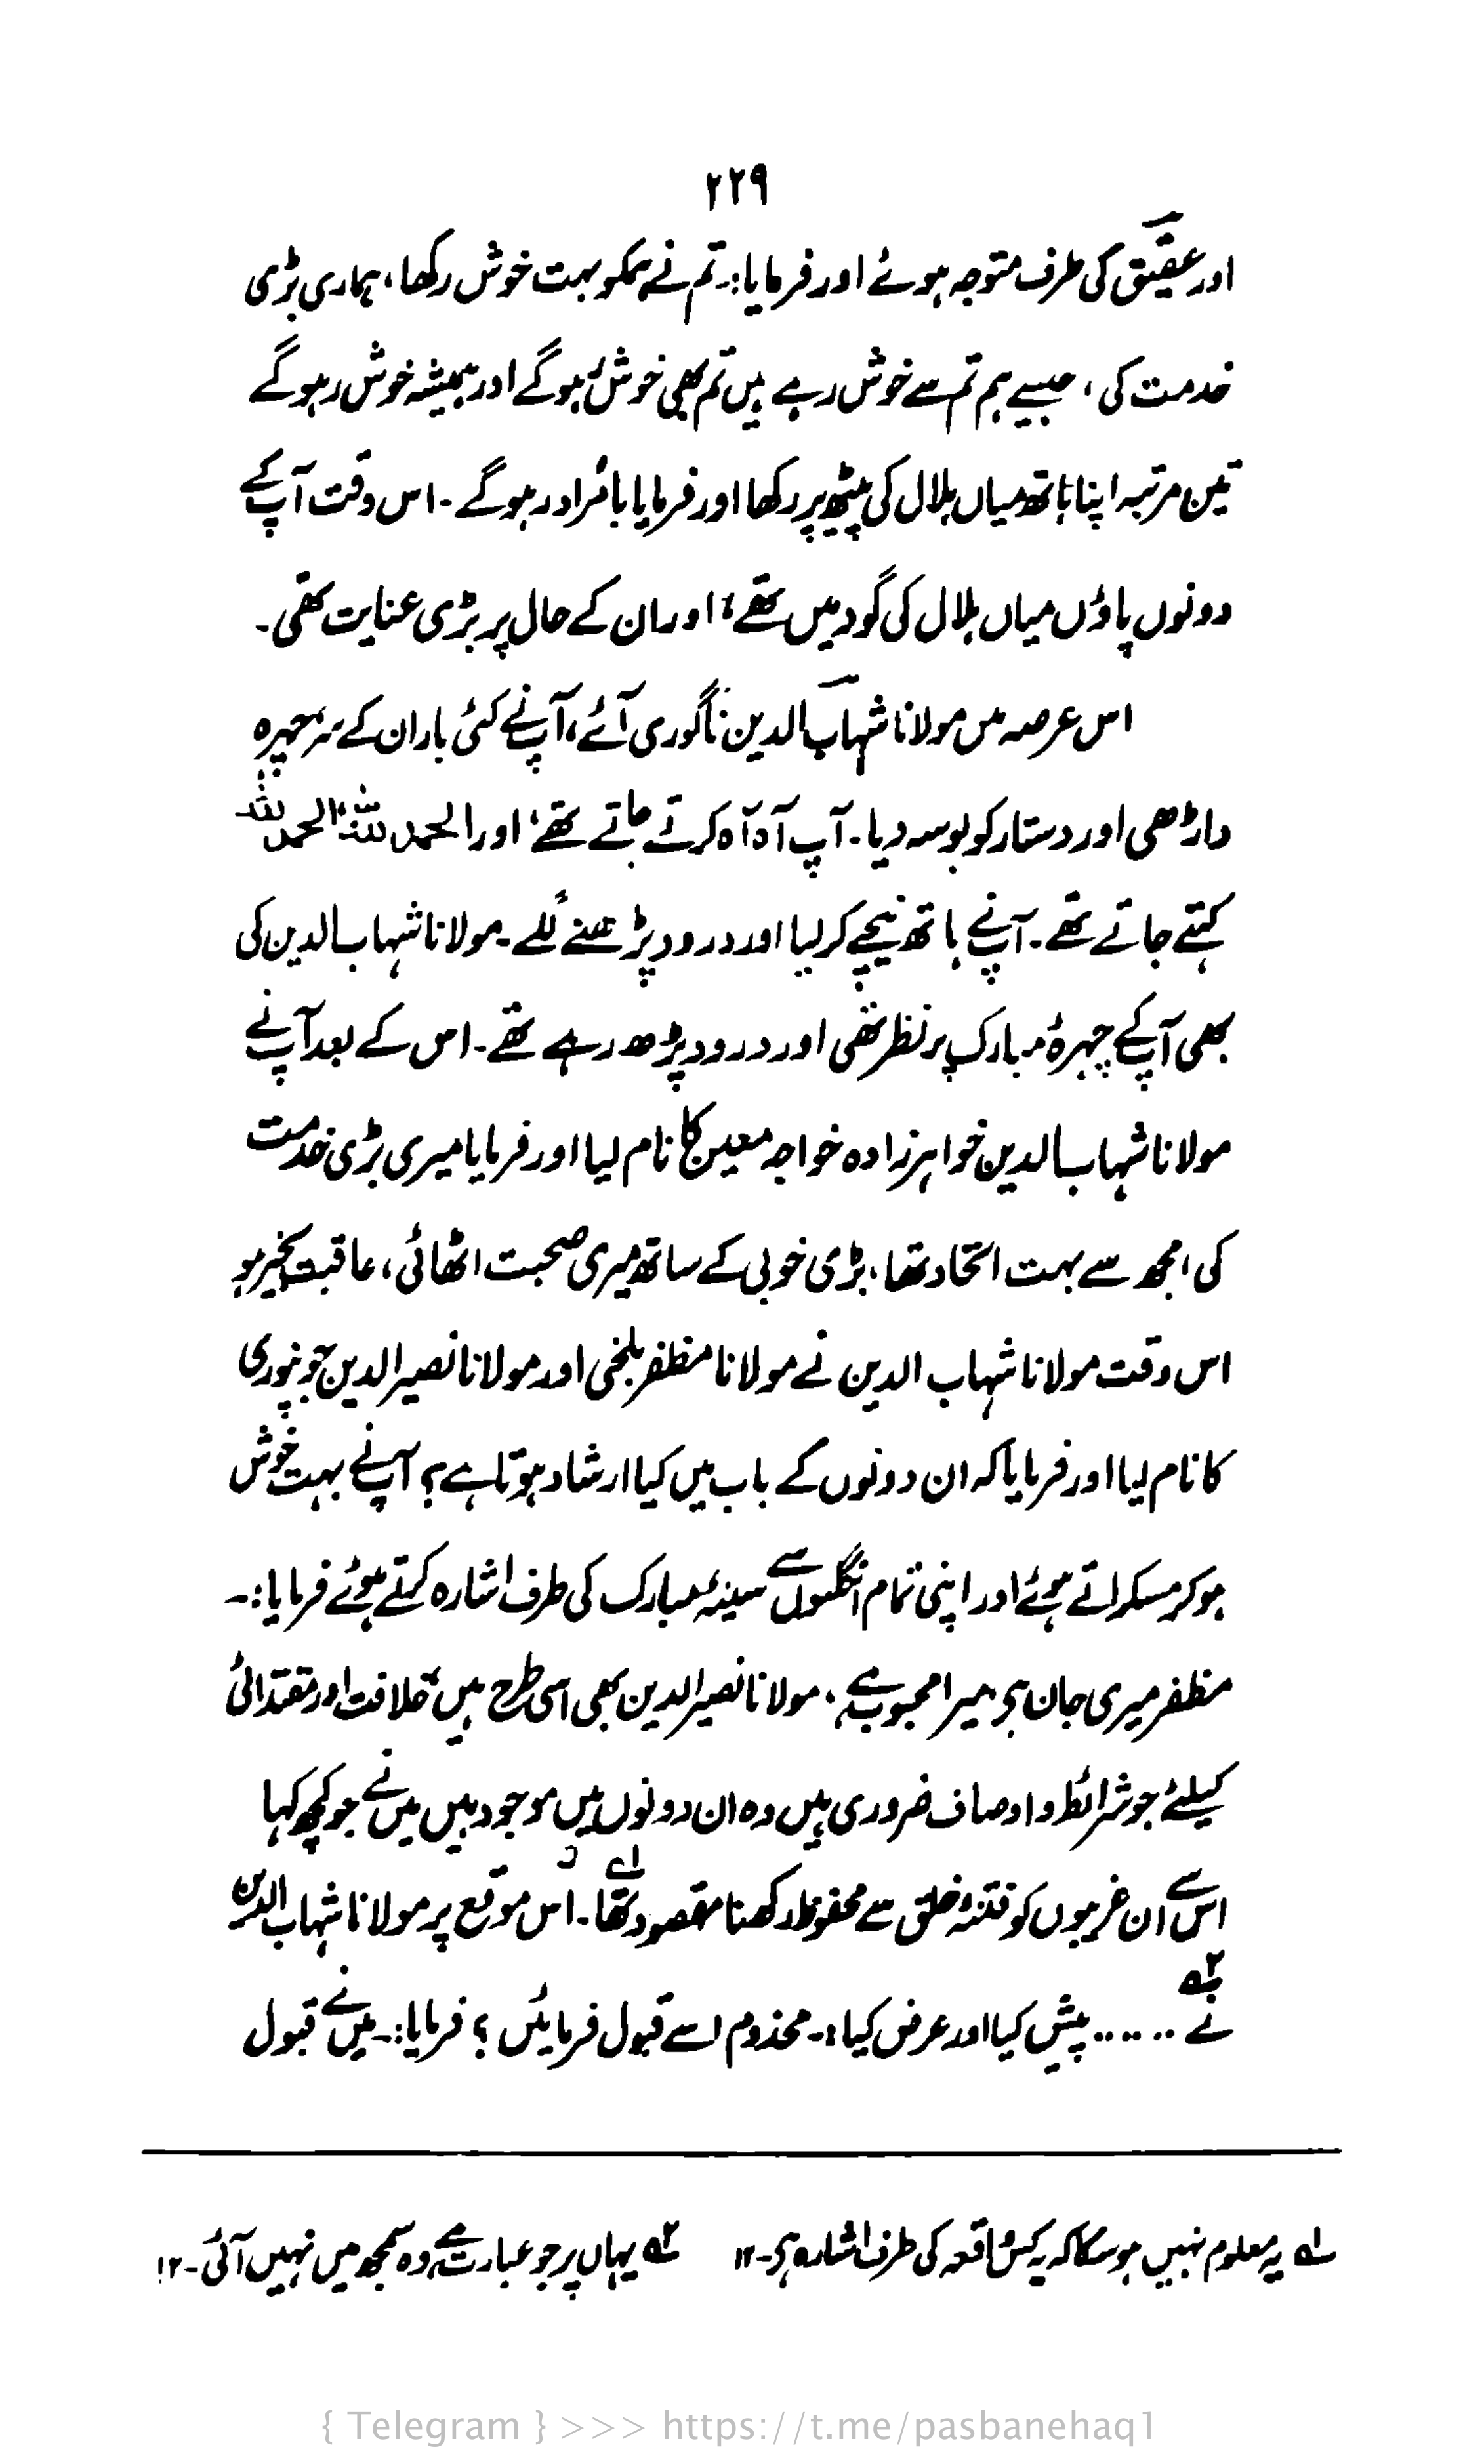 ۲۲۹
اور عقیق کی طرف متوجہ ہوئے اور فرمایا:۔ تم نے ہمکو بہت خوش رکھا، ہماری بڑی
خدمت کی، جیسے ہم تم سے خوش رہے ہیں تم بھی خوش ہوگے اور ہمیشہ خوش رہوگے
تین مرتبہ اپنا ہاتھ میاں ہلال کی پیٹھ پر رکھا اور فرمایا بامُراد رہوگے۔ اس وقت آپ کے
دونوں پاؤں میاں ہلال کی گود میں تھے، اور ان کے حال پر بڑی عنایت تھی۔
اس عرصہ میں مولانا شہاب الدین ناگوری آئے، آپ نے کئی بار ان کے سر، چہرہ
داڑھی اور دستار کو بوسہ دیا۔ آپ آہ آہ کرتے جاتے تھے، اور الحمد للہ، الحمد للہ
کہتے جاتے تھے۔ آپ نے ہاتھ نیچے کر لیا اور درود پڑھنے لگے۔ مولانا شہاب الدین کی
بھی آپ کے چہرۂ مبارک پر نظر تھی اور درود پڑھ رہے تھے۔ اس کے بعد آپ نے
مولانا شہاب الدین خواہر زادہ خواجہ معین کا نام لیا اور فرمایا میری بڑی خدمت
کی، مجھ سے بہت اتحاد تھا، بڑی خوبی کے ساتھ میری صحبت اٹھائی، عاقبت بخیر ہو
اس وقت مولانا شہاب الدین نے مولانا مظفر بلخی اور مولانا نصیر الدین جونپوری
کا نام لیا اور فرمایا کہ ان دونوں کے باب میں کیا ارشاد ہوتا ہے؟ آپ نے بہت خوش
ہو کر مسکراتے ہوئے اور اپنی تمام انگلیوں سے سینۂ مبارک کی طرف اشارہ کرتے ہوئے فرمایا:۔
مظفر میری جان ہے، میرا محبوب ہے، مولانا نصیر الدین بھی اسی طرح ہیں، خلافت اور مقتدائی
کیلئے جو شرائط و اوصاف ضروری ہیں وہ ان دونوں میں موجود ہیں میں نے جو کچھ کہا
اس سے ان غریبوں کو فتنۂ خلق سے محفوظ رکھنا مقصود تھا۔ ؎۱ اس موقع پر مولانا شہاب الدین
نے ؎۲ ...... پیش کیا اور عرض کیا:۔ مخدوم اسے قبول فرمائیں؟ فرمایا:۔ میں نے قبول
؎۱ یہ معلوم نہیں ہو سکا کہ یہ کس واقعہ کی طرف اشارہ ہے۔ ۱۲ ؎۲ یہاں پر جو عبارت ہے وہ سمجھ میں نہیں آئی۔ ۱۲!
{ Telegram } >>> https://t.me/pasbanehaq1